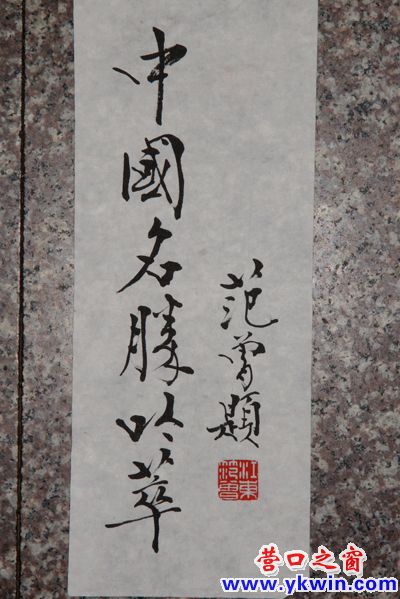 中國名勝吟萃
范曾題
江東范曾
营口之窗
www.ykwin.com